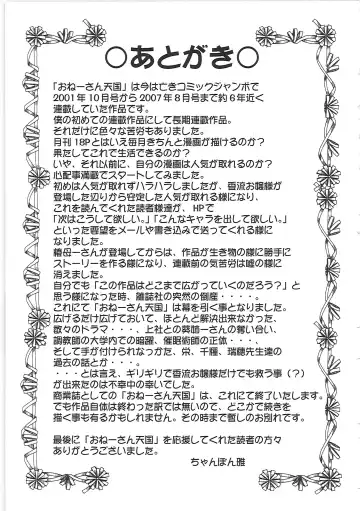 ○あとがき○
「おねーさん天国」は今は亡きコミックジャンボで
2001年10月号から2007年8月号まで約6年近く
連載していた作品です。
僕の初めての連載作品にして長期連載作品。
それだけに色々な苦労もありました。
月刊18Pとはいえ毎月きちんと漫画が描けるのか?
果たしてこれで生活できるのか?
いや、それ以前に、自分の漫画は人気が取れるのか?
心配事満載でスタートしてみました。
初めは人気が取れずハラハラしましたが、香流お嬢様が
登場した辺りから安定した人気が取れる様になり、
これを読んでくれた読者様達が、HPで
「次はこうして欲しい。」「こんなキャラを出して欲しい。」
といった要望をメールや書き込みで送ってくれる様に
なりました。
籍母ーさんが登場してからは、作品が生き物の様に勝手に
ストーリーを作る様になり、連載前の気苦労は嘘の様に
消えました。
自分でも「この作品はどこまで広がっていくのだろう?」と
思う様になった時、雑誌社の突然の倒産・・・・。
これにて「おねーさん天国」は幕を引く事となりました。
広げるだけ広げておいて、ほとんど解決出来なかった、
数々のドラマ・・・、上社との葵姉ーさんの奪い合い、
調教師の大学内での暗躍、催眠術師の正体・・・、
そして手が付けられなかった、栄、千種、瑞穂先生達の
過去の話とか・・・。
・・・とは言え、ギリギリで香流お嬢様だけでも救う事(?)
が出来たのは不幸中の幸いでした。
商業誌としての「おねーさん天国」は、これにて終了いたします。
でも作品自体は終わった訳では無いので、どこかで続きを
描く事も有るかもしれません。その時まで暫しのお別れです。
最後に「おねーさん天国」を応援してくれた読者の方々
ありがとうございました。
ちゃんぽん雅